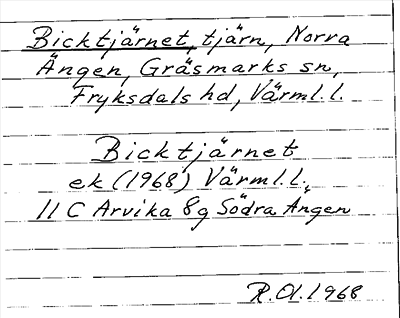 Bicktjärnet, tjärn, Norra
Ängen, Gräsmarks sn,
Fryksdals hd, Värml.l.
Bicktjärnet
ek (1968) Värml.l.
11 C Arvika 8g Södra Ängen
R.Ol.1968